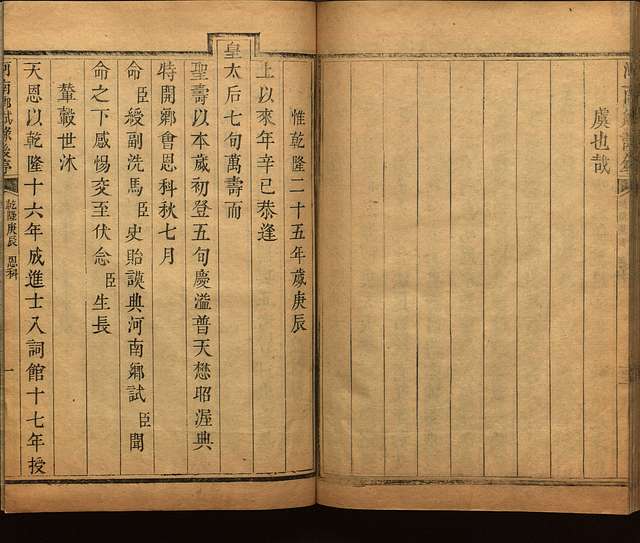 虞也哉
惟乾隆二十五年歲庚辰
上以來年辛巳恭逢
皇太后七旬萬壽而
聖壽以本歲初登五旬慶溢普天懋昭渥典
特開鄉會恩科秋七月
命臣綬副洗馬臣史貽謨典河南鄉試臣聞
命之下感惕交至伏念臣生長
輦轂世沐
天恩以乾隆十六年成進士入詞館十七年授
河南鄉試錄後序
乾隆庚辰恩科
一